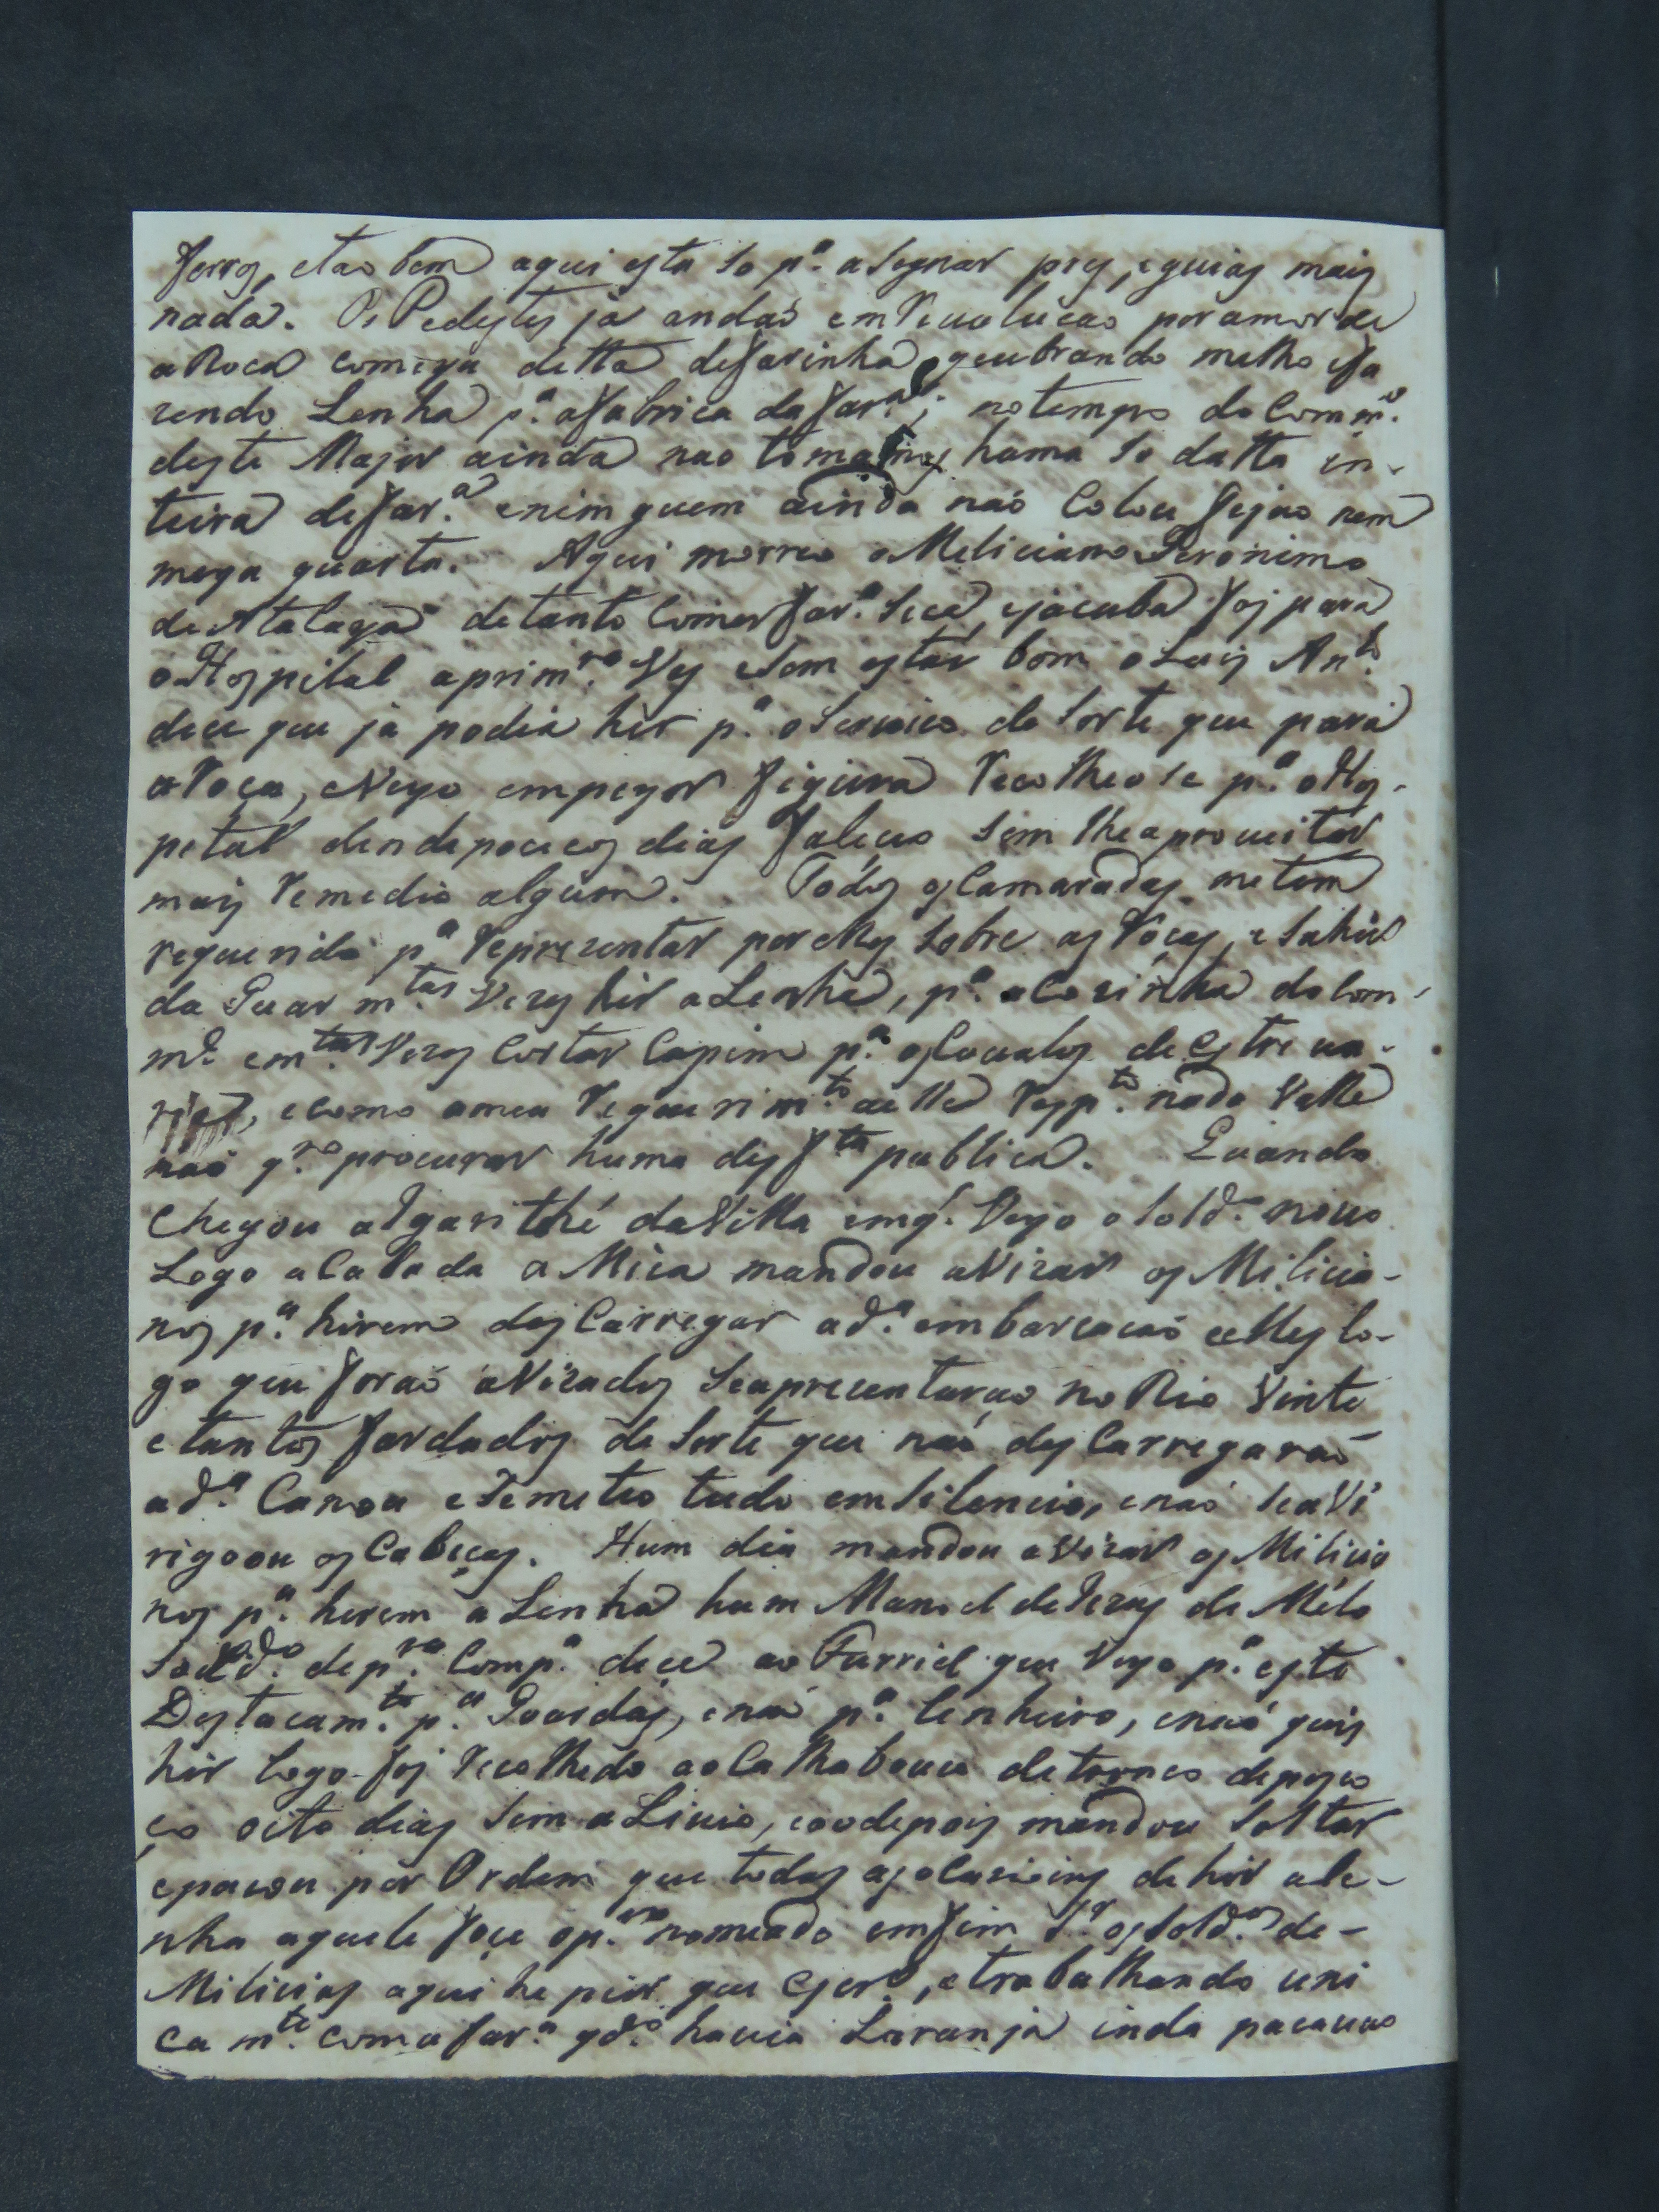 ferros, etao bem aqui esta so p.ª asegnar pres, eguias mais
nada. Os Pedestes já andaõ emRevolucao poramorde
aRoca comega detta defarinha, queubrando matho efa
zendo Lenha p.ª afabrica dafar.ª; notempo do Comm.e
deste Major ainda nao tomamos huma so datta in-
teira defar.ª enimguem ainda naó Colou fejao nem
meya quarta. Aqui morreo oMeliciano Jeronimo
de Atalaya detanto Comer far.ª seca, ejacuba foj para
oHospital aprim.ra Ves esem estar bom oLuis Ant.o
dice que já podia hir p.ª oservico de sorte que para
aRoca, eVeyo empeyor figura Recolheose p.ª oHos-
petal ehendepoucos dias faleceo sem lheaproueitar
mais Remedio algum. Todos osCamaradas metem
requerido p.ª Reprezentar porelles sobre as Rócas, esahir
da Guar m.tas Vezes hir aLenha, p.ª aCozinha doCom-
m.e em.tas Vezes Cortar Capim p.ª osCoualos deestreua-
rias, ecomo ameu Requerim.to delle Resp.to nada Valle
naó q.ro procurar huma desf.ta publica. Quando
Chegou aIgarithé daVilla emq.' Veyo osold.o nouo
Logo aCabada aMiça mandou aVizar os Milicia-
nos p.ª hirem desCarregar ad.ª embarcacaó eelles lo-
go que foraó aVizados seaprecentaraõ noRio Vinte
etantos fardados de sorte que naó desCarregaraõ
ad.ª Canoa esemeteo tudo emsilencio, enaó seaVi
rigoou osCabeças. Hum dia mandou aVizar os Milicia
nos p.ª herem aLenha hum Manoel deJezus de Mélo
sold.o dep.ra Comp.ª dice ao Furriel que Veyo p.ª este
Destacam.to p.ª Goardas, enaó p.ª lenheiro, enaó quis
hir Logo foj Recolhedo aoCalhabouco detronco depesco
ço oito dias sem aLiuio, eaodepois mandou soltar
epacou por Ordem que todas asocasioins dehir ale-
nha aquele foçe op.ro nomeado emfim S.r ossold.os de-
Milicias aqui he pior que Cjer.º, etrabalhando uni
Cam.te comafar.ª qd.o hauia Laranja inda pacauaõ